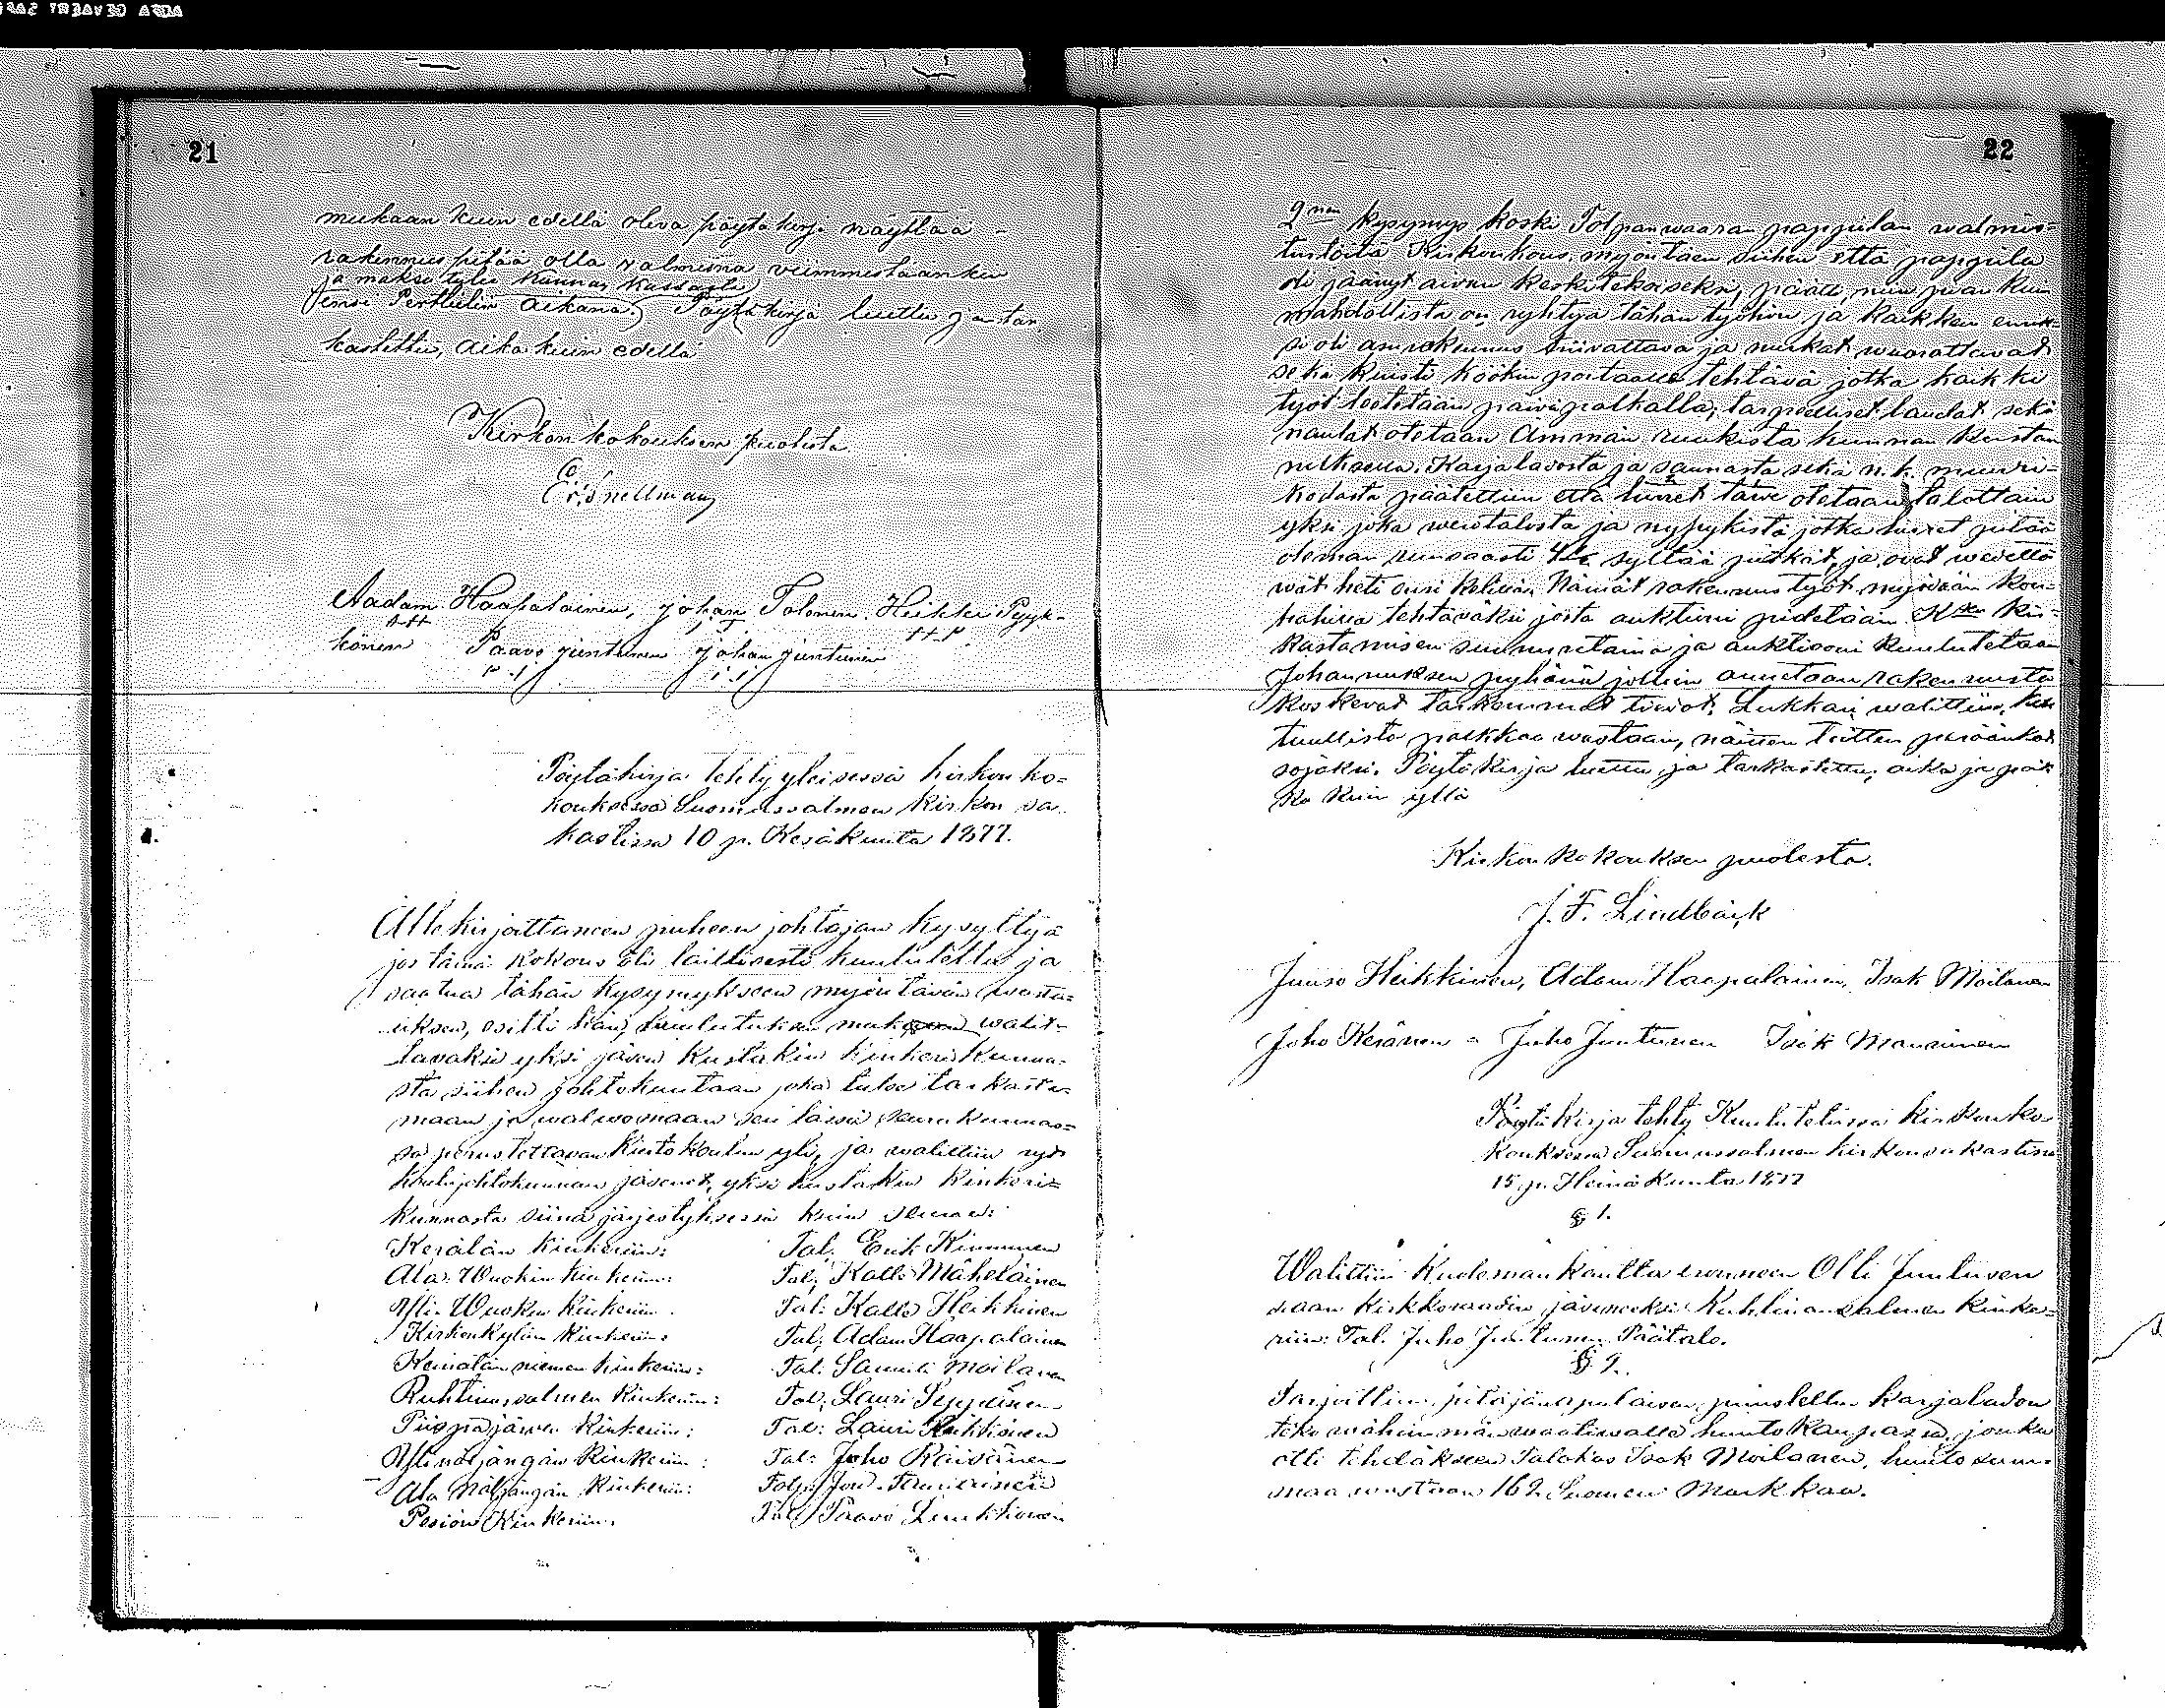 21
mukaan kuin edellä oleva pöytäkirja näyttää -
rakennus pitää olla valmiina viimmeistäänkin
ja maksu tulee kunnan kassasta
ensi Perttulin aikana. Pöytäkirja luettu ja tar-
kastettu, aika kuin edellä
Kirkonkokouksen puolesta.
Er. Snellman
Aadam Haapalainen, Johan Tolonen Heikki Pyyk-
könen Paavo Juntunen Johan Juntunen
Pöytäkirja tehty yleisessä kirkonko-
kouksessa Suomussalmen kirkon sa-
kastissa 10 p. Kesäkuuta 1877.
Allekirjoittaneen puheen johtajan kysyttyä
jos tämä kokous oli laillisesti kuulutettu ja
saatua tähän kysymykseen myöntävän vasta-
uksen, esitti hän, kuulutuksen mukaan walit-
tavaksi yksi jäsen kustakin kinkerikunna-
sta siihen johtokuntaan joka tulee tarkasta-
maan ja walwomaan sen tässä seurakunnas-
sa perustettavan kiertokoulun yli, ja walittiin nyt
koulujohtokunnan jäsenet, yksi kustakin kinkeri-
kunnasta siinä järjestyksessä kuin seuraa:
Kerälän kinkeriin: Tal. Erik Kinnunen
Ala-Wuokin kinkeriin: Tal. Kalle Mäheläinen
Yli-Wuokin kinkeriin. Tal. Kalle Heikkinen
Kirkonkylän kinkeriin: Tal. Adam Haapalainen
Keinälänniemen kinkeriin: Tal. Samuli Moilanen
Ruhtinansalmen kinkeriin: Tal. Lauri Seppänen
Piispajärven kinkeriin: Tal. Lauri
Yli näljängän kinkeriin: Tal. Juho Räisänen
Ala Näljängän kinkeriin: Tal.
Pesiön kinkeriin. Tal. Paavo
22
2nen kysymys koski Tolpanwaaran pappilan walmis-
tustöitä Kirkonkous myöntäen siihen että pappila
oli jäänyt aivan keskitekoiseksi, päätti, niin pian kuin
mahdollista on ryhtyä tähän työhön ja kaikkein ensik-
si oli asuirakennus tiivattava ja nurkat wuorattavat
sekä kuisti köökin portaalle tehtävä jotka kaikki
työt teetetään päiväpalkalla; tarpeelliset laudat sekä
naulat otetaan Ämmän ruukista kunnan kustan-
nuksella. Karjalavosta ja saunasta sekä n.k. muuri-
kodasta päätettiin että hirret tarve otetaan talottain
yksi joka werotalosta ja nyppykistä jotka hirret pitää
oleman runsaasti 4½ syltää pitkät, ja ovat wedettä-
wät heti ensi kelillä. Nämät rakennustyöt myödään kou-
pahissa tehtäväksi josta auktioni pidetään Kken kir-
kastamisen sunnuntaina ja auktiooni kuulutetaan
Johannuksen pyhänä jolloin annetaan rakennusta
koskevat tarkemmat tiedot. Lukkari walittiin, koh-
tuullista palkkaa wastaan, näitten töitten peräänkat-
sojaksi. Pöytäkirja luettu ja tarkastettu; aika ja paik-
ka kuin yllä
Kirkonkokouksen puolesta.
J. F. Lindbäck
Juuso Heikkinen, Adam Haapalainen, Isak Moilanen
Juho Keränen - Juho Juntunen Isak Manninen
Pöytäkirja tehty Kuulutetussa kirkonko-
kouksessa Suomussalmen kirkonsakastissa
15 p. Heinäkuuta 1877
§ 1.
Walittiin kuoleman kautta eronneen Olli Juntusen
siaan kirkkoraadin jäseneeksi Ruhtinansalmen kinke-
riin: Tal. Juho Juntunen Päätalo.
§ 2.
Tarjottiin pitäjänapulaisen puustellin karjaladon
teko vähimmän waativalle huutokaupassa, jonka
otti tehdäkseen Talokas Isak Moilanen, huuto sum-
maa wastaan 162 Suomen Markkaa.